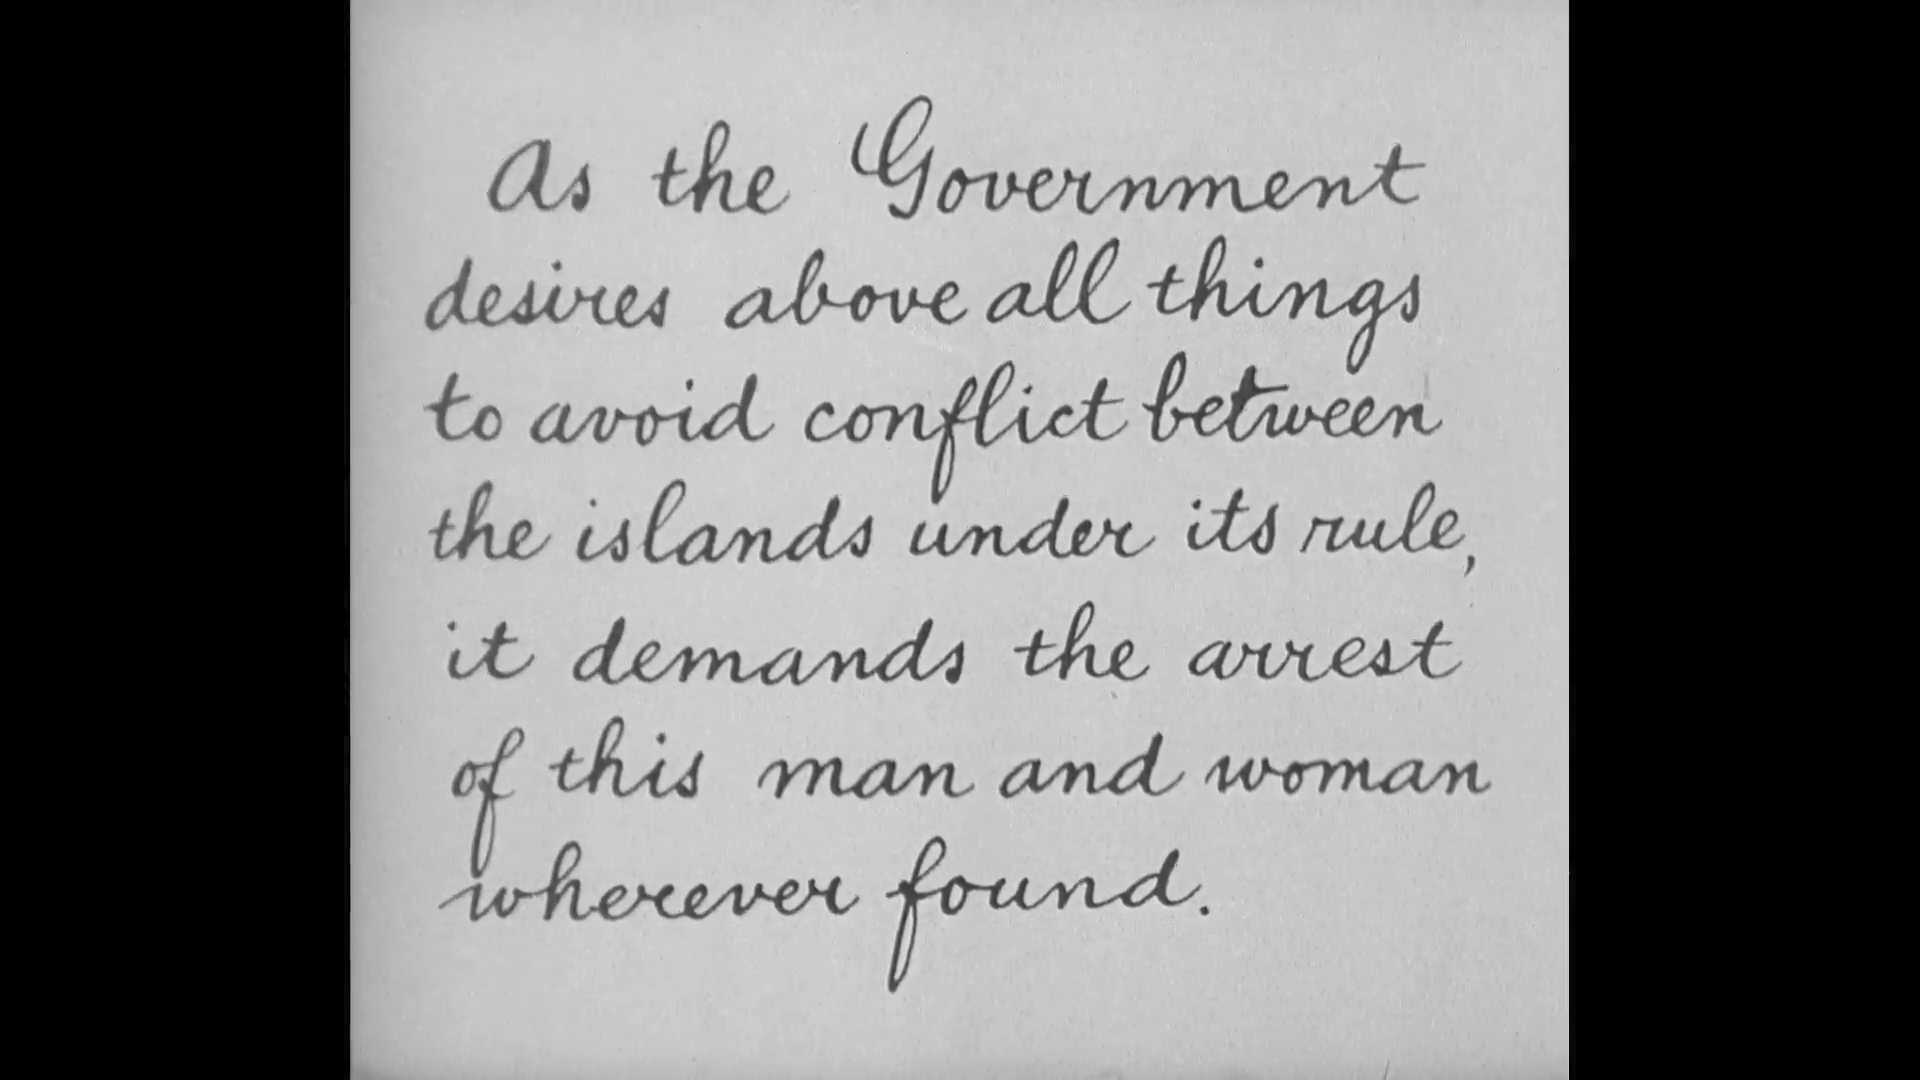 As the Government
desires above all things
to avoid conflict between
the islands under its rule,
it demands the arrest
of this man and woman
wherever found.